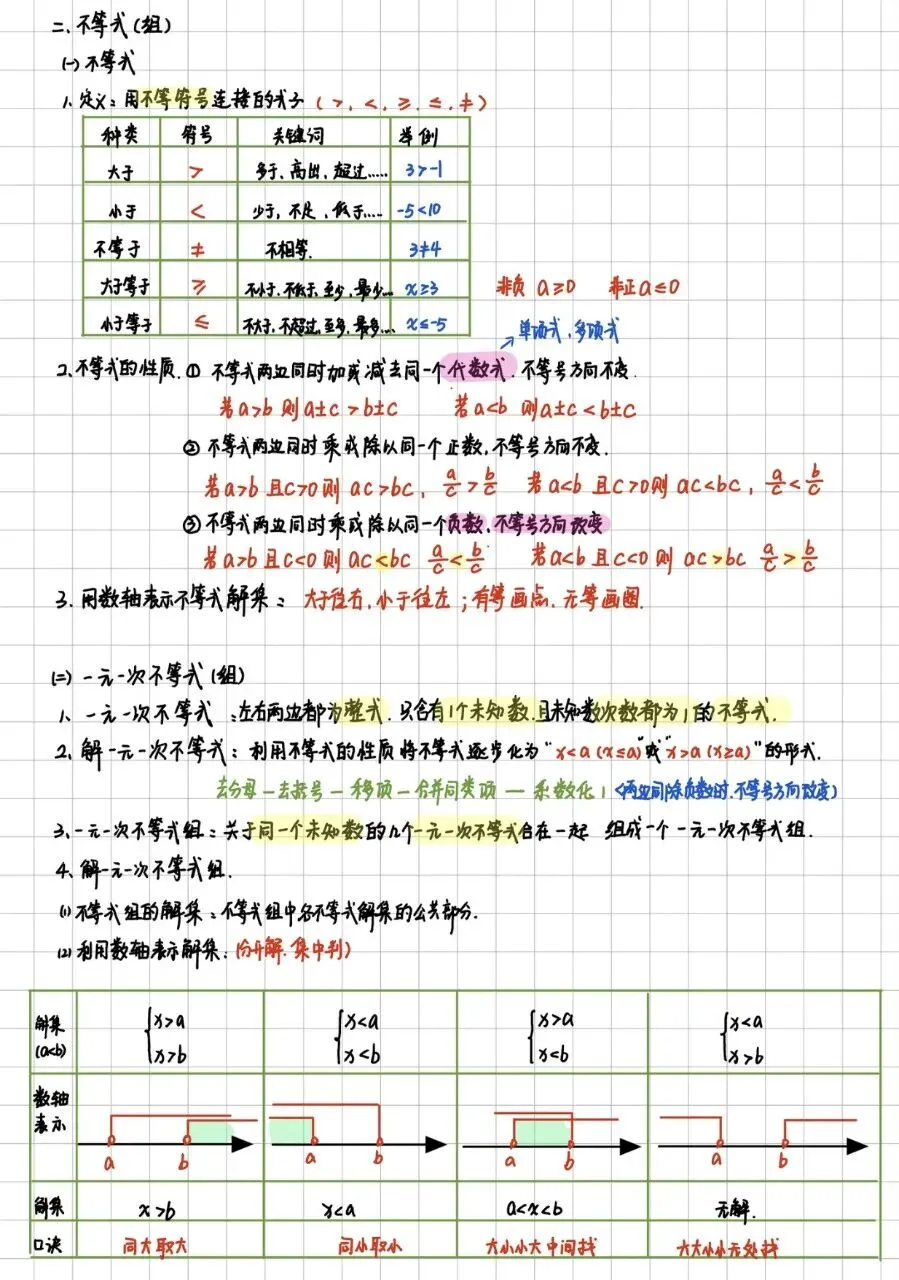 二、不等式(组)
(一)不等式
1、定义：用不等符号连接的式子 (>、<、≥、≤、≠)
种类 符号 关键词 举例
大于 > 多于、高出、超过..... 3>-1
小于 < 少于、不足、低于..... -5<10
不等于 ≠ 不相等. 3≠4
大于等于 ≥ 不小于、不低于、至少、最少... x≥3 非负 a≥0 非正a≤0
小于等于 ≤ 不大于、不超过、至多、最多... x≤-5
单项式、多项式
2、不等式的性质. ① 不等式两边同时加或减去同一个代数式. 不等号方向不变.
若a>b 则a±c>b±c 若a<b 则a±c<b±c
② 不等式两边同时乘或除以同一个正数,不等号方向不变.
若a>b 且c>0则 ac>bc, a/c>b/c 若a<b 且c>0则 ac<bc, a/c<b/c
③ 不等式两边同时乘或除以同一个负数,不等号方向改变
若a>b 且c<0 则 ac<bc a/c<b/c 若a<b 且c<0 则 ac>bc a/c>b/c
3. 用数轴表示不等式解集： 大于往右,小于往左；有等画点、无等画圈.
(二) 一元一次不等式(组)
1、一元一次不等式：左右两边都为整式.只含有1个未知数.且未知数次数都为1的不等式.
2、解一元一次不等式：利用不等式的性质将不等式逐步化为“x<a(x≤a)”或“x>a(x≥a)”的形式.
去分母—去括号—移项—合并同类项—系数化1(两边同除负数时.不等号方向改变)
3、一元一次不等式组：关于同一个未知数的几个一元一次不等式合在一起 组成一个一元一次不等式组.
4、解一元一次不等式组.
(1)不等式组的解集：不等式组中各不等式解集的公共部分.
(2)利用数轴表示解集：(分开解.集中判)
解集(a<b) {x>a x>b {x<a x<b {x>a x<b {x<a x>b
数轴表示 a b a b a b a b
解集 x>b x<a a<x<b 无解.
口诀 同大取大 同小取小 大小小大中间找 大大小小无处找